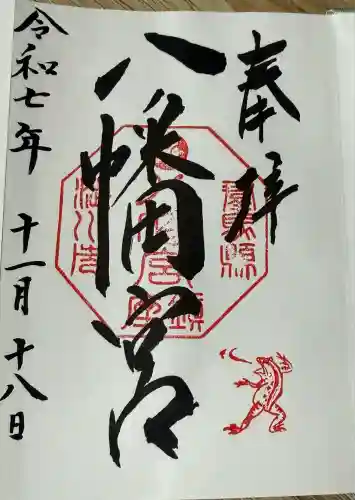 奉拝
八幡宮
令和七年 十一月 十八日